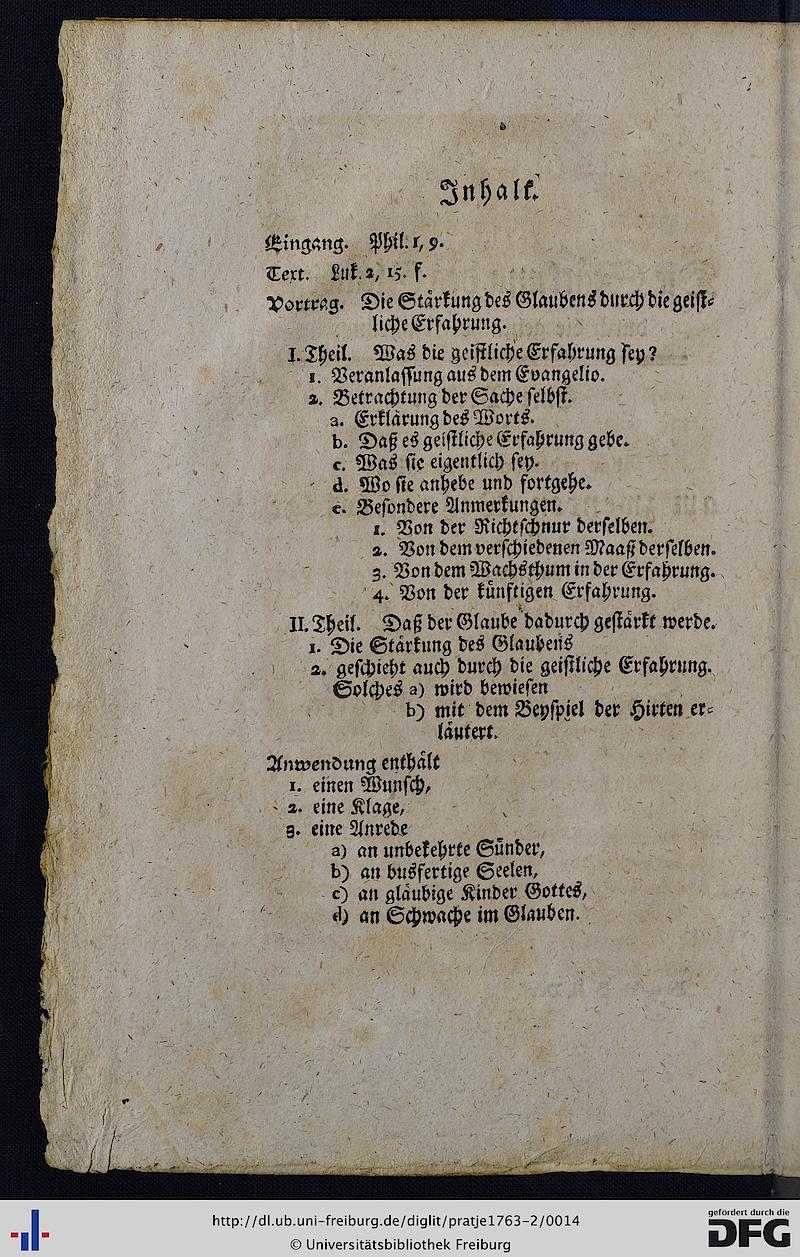 Inhalt.
Eingang. Phil. 1, 9.
Text. Luk. 2, 15. f.
Vortrag. Die Stärkung des Glaubens durch die geist-
liche Erfahrung.
I. Theil. Was die geistliche Erfahrung sey?
1. Veranlassung aus dem Evangelio.
2. Betrachtung der Sache selbst.
a. Erklärung des Worts.
b. Daß es geistliche Erfahrung gebe.
c. Was sie eigentlich sey.
d. Wo sie anhebe und fortgehe.
e. Besondere Anmerkungen.
1. Von der Richtschnur derselben.
2. Von dem verschiedenen Maaß derselben.
3. Von dem Wachsthum in der Erfahrung.
4. Von der künftigen Erfahrung.
II. Theil. Daß der Glaube dadurch gestärkt werde.
1. Die Stärkung des Glaubens
2. geschieht auch durch die geistliche Erfahrung.
Solches a) wird bewiesen
b) mit dem Beyspiel der Hirten er-
läutert.
Anwendung enthält
1. einen Wunsch,
2. eine Klage,
3. eine Anrede
a) an unbekehrte Sünder,
b) an busfertige Seelen,
c) an gläubige Kinder Gottes,
d) an Schwache im Glauben.
http://dl.ub.uni-freiburg.de/diglit/pratje1763-2/0014
© Universitätsbibliothek Freiburg
gefördert durch die
DFG